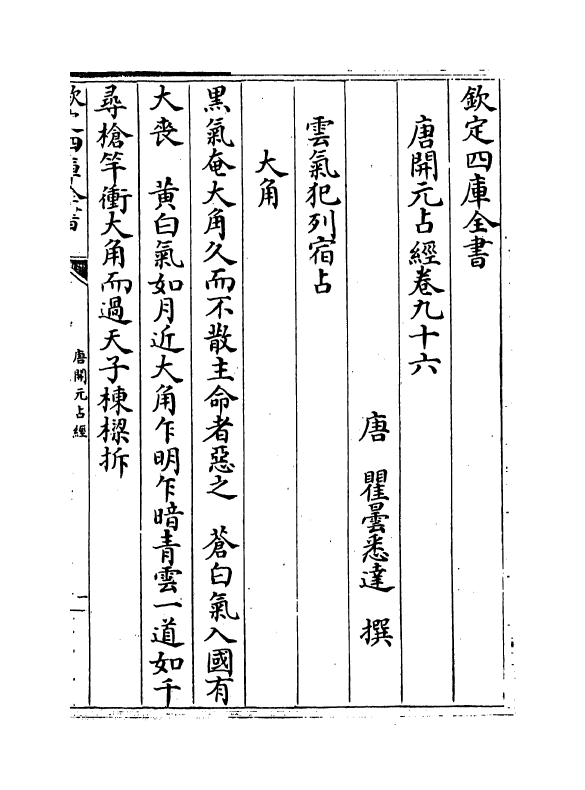 欽定四庫全書
唐開元占經卷九十六
唐　瞿曇悉達　撰
雲氣犯列宿占
大角
黑氣奄大角久而不散主命者惡之　蒼白氣入國有
大喪　黃白氣如月近大角乍明乍暗青雲一道如千
尋槍竿衝大角而過天子棟樑拆
欽定四庫全書
唐開元占經
一